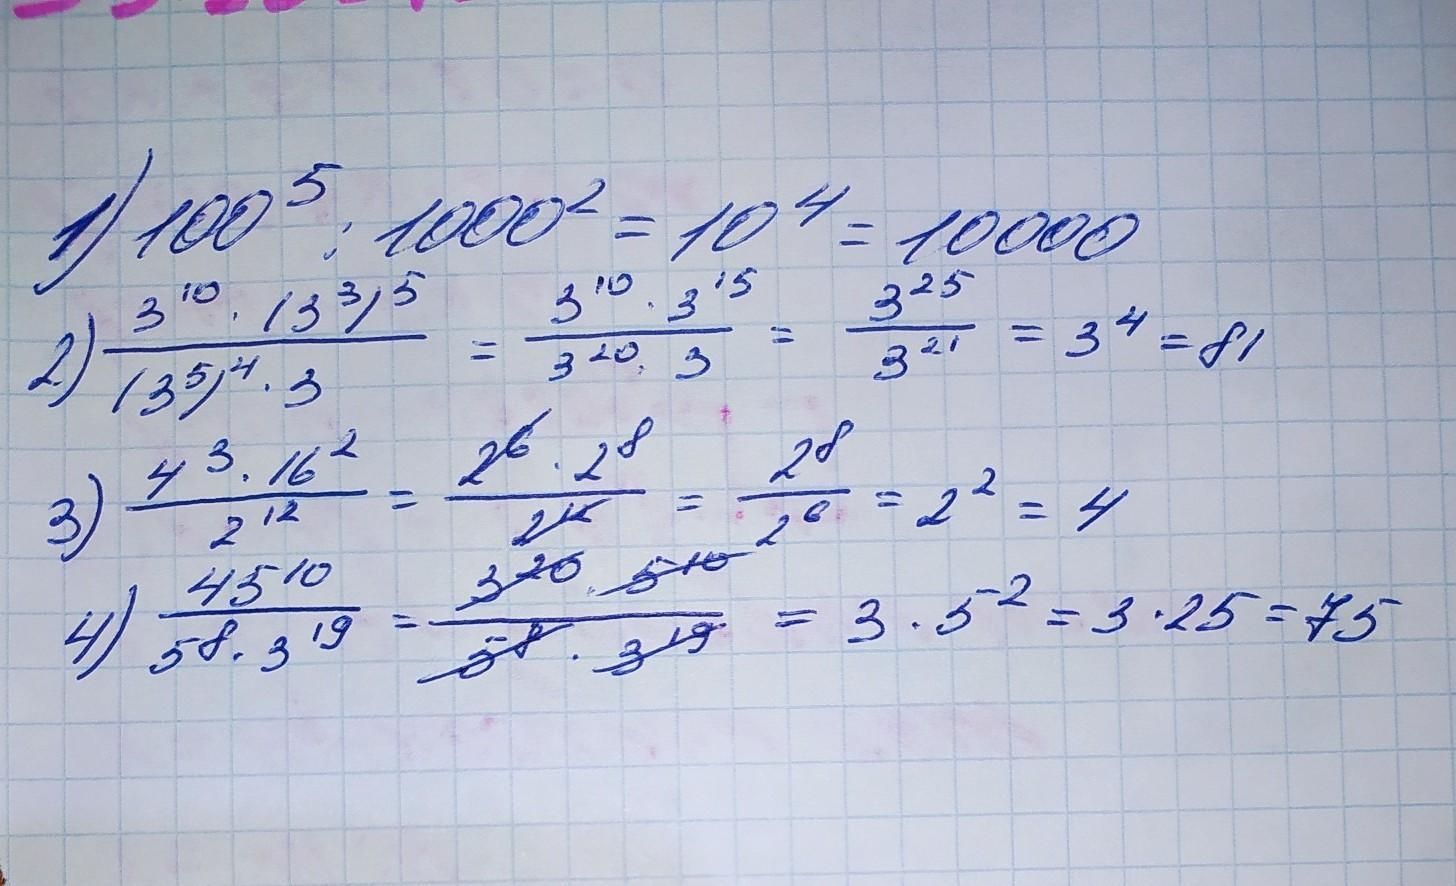 1) 100^5 : 1000^2 = 10^4 = 10000
2) \frac{3^{10} \cdot (3^3)^5}{(3^5)^4 \cdot 3} = \frac{3^{10} \cdot 3^{15}}{3^{20} \cdot 3} = \frac{3^{25}}{3^{21}} = 3^4 = 81
3) \frac{4^3 \cdot 16^2}{2^{12}} = \frac{2^6 \cdot 2^8}{2^{12}} = \frac{2^8}{2^6} = 2^2 = 4
4) \frac{45^{10}}{5^8 \cdot 3^{19}} = \frac{3^{20} \cdot 5^{10}}{5^8 \cdot 3^{19}} = 3 \cdot 5^2 = 3 \cdot 25 = 75